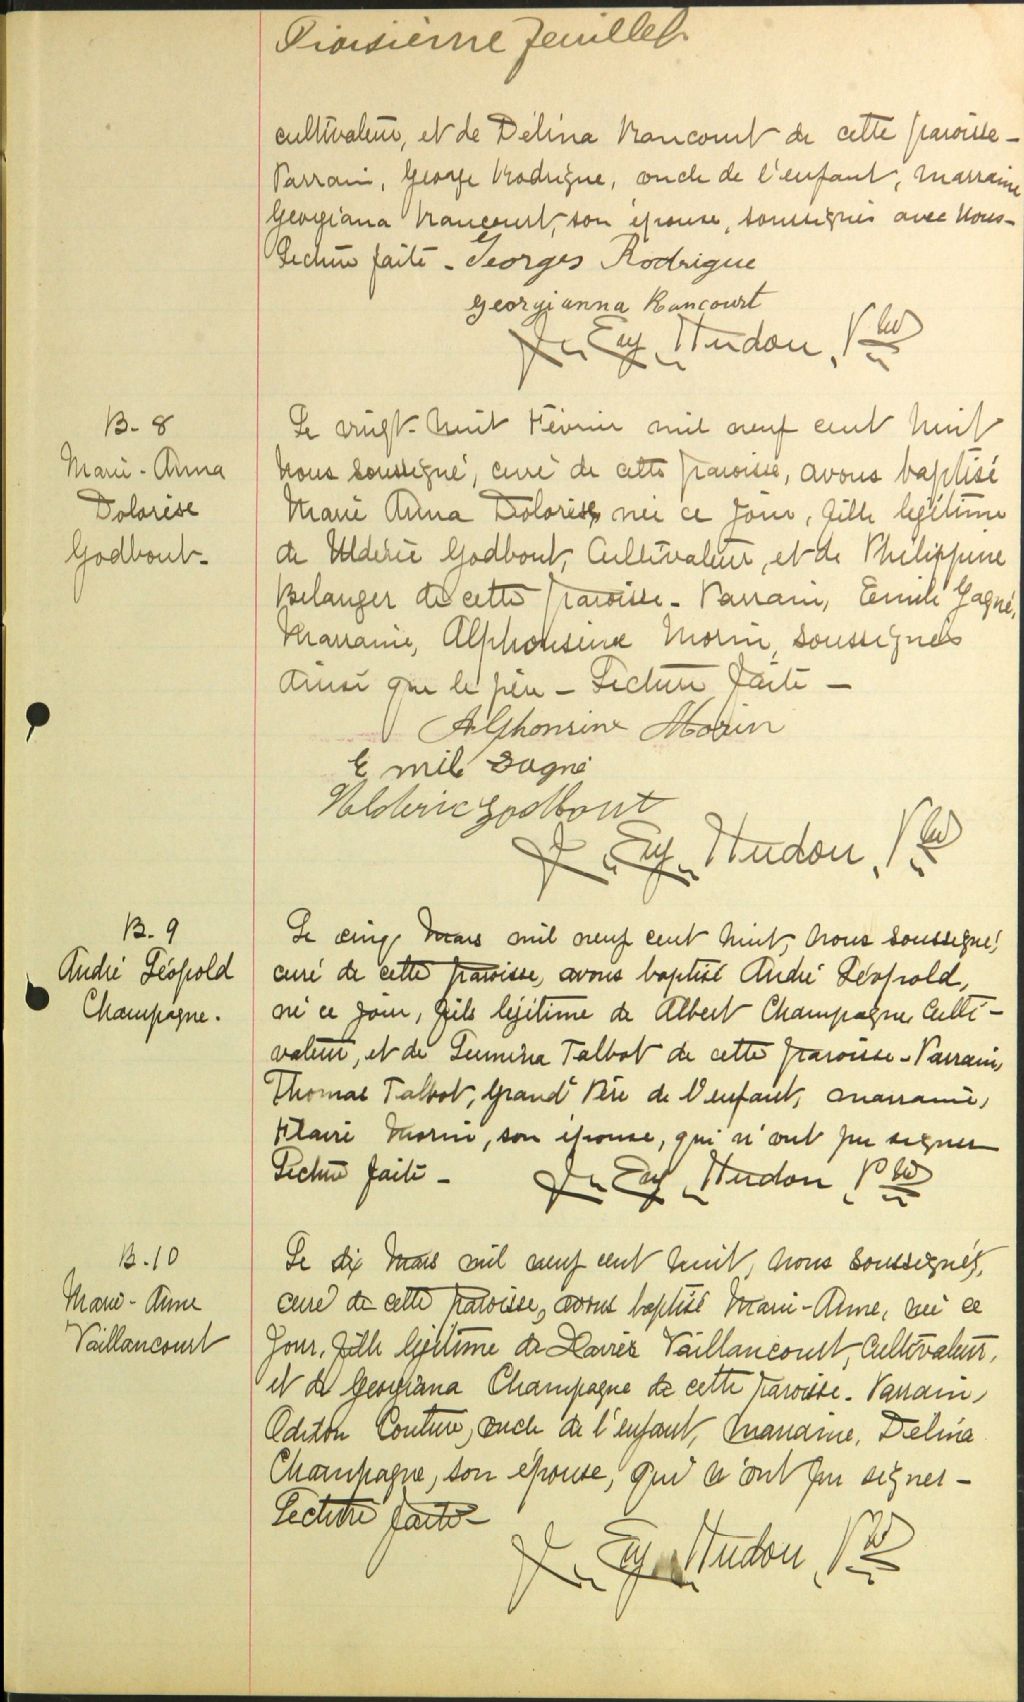 Troisième feuillet
cultivateur, et de Délina Rancourt de cette paroisse -
Parrain, George Rodrigue, oncle de l'enfant, marraine
Georgiana Rancourt, son épouse, soussignés avec Nous -
Lecture faite - Georges Rodrigue
Georgianna Rancourt
J. Eug. Hudon, Ptre
B - 8
Marie - Anna
Dolorèse
Godbout -
Le vingt-huit Février mil neuf cent huit
Nous soussigné, curé de cette paroisse, avons baptisé
Marie Anna Dolorèse, née ce jour, fille légitime
de Uldéric Godbout, Cultivateur, et de Philippine
Belanger de cette paroisse - Parrain, Emile Gagné,
Marraine, Alphonsine Morin, soussignés
ainsi que le père - Lecture faite -
Alphonsine Morin
Emile Gagné
Ulderic Godbout
J. Eug. Hudon, Ptre
B - 9
André Léopold
Champagne.
Le cinq Mars mil neuf cent huit, nous soussigné,
curé de cette paroisse, avons baptisé André Léopold,
né ce jour, fils légitime de Albert Champagne, Culti-
vateur, et de Lumina Talbot de cette paroisse - Parrain,
Thomas Talbot, Grand Père de l'enfant, marraine,
Morin, son épouse, qui n'ont pu signer
Lecture faite - J. Eug. Hudon, Ptre
B - 10
Marie - Anne
Vaillancourt
Le dix Mars mil neuf cent huit, nous soussigné,
curé de cette paroisse, avons baptisé Marie-Anne, née ce
jour, fille légitime de Xavier Vaillancourt, Cultivateur,
et de Georgiana Champagne de cette paroisse - Parrain,
Odilon Couture, oncle de l'enfant, marraine, Délina
Champagne, son épouse, qui n'ont pu signer -
Lecture faite -
J. Eug. Hudon, Ptre